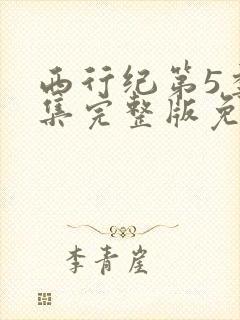 西行纪第5季
集完整版免
李青崖